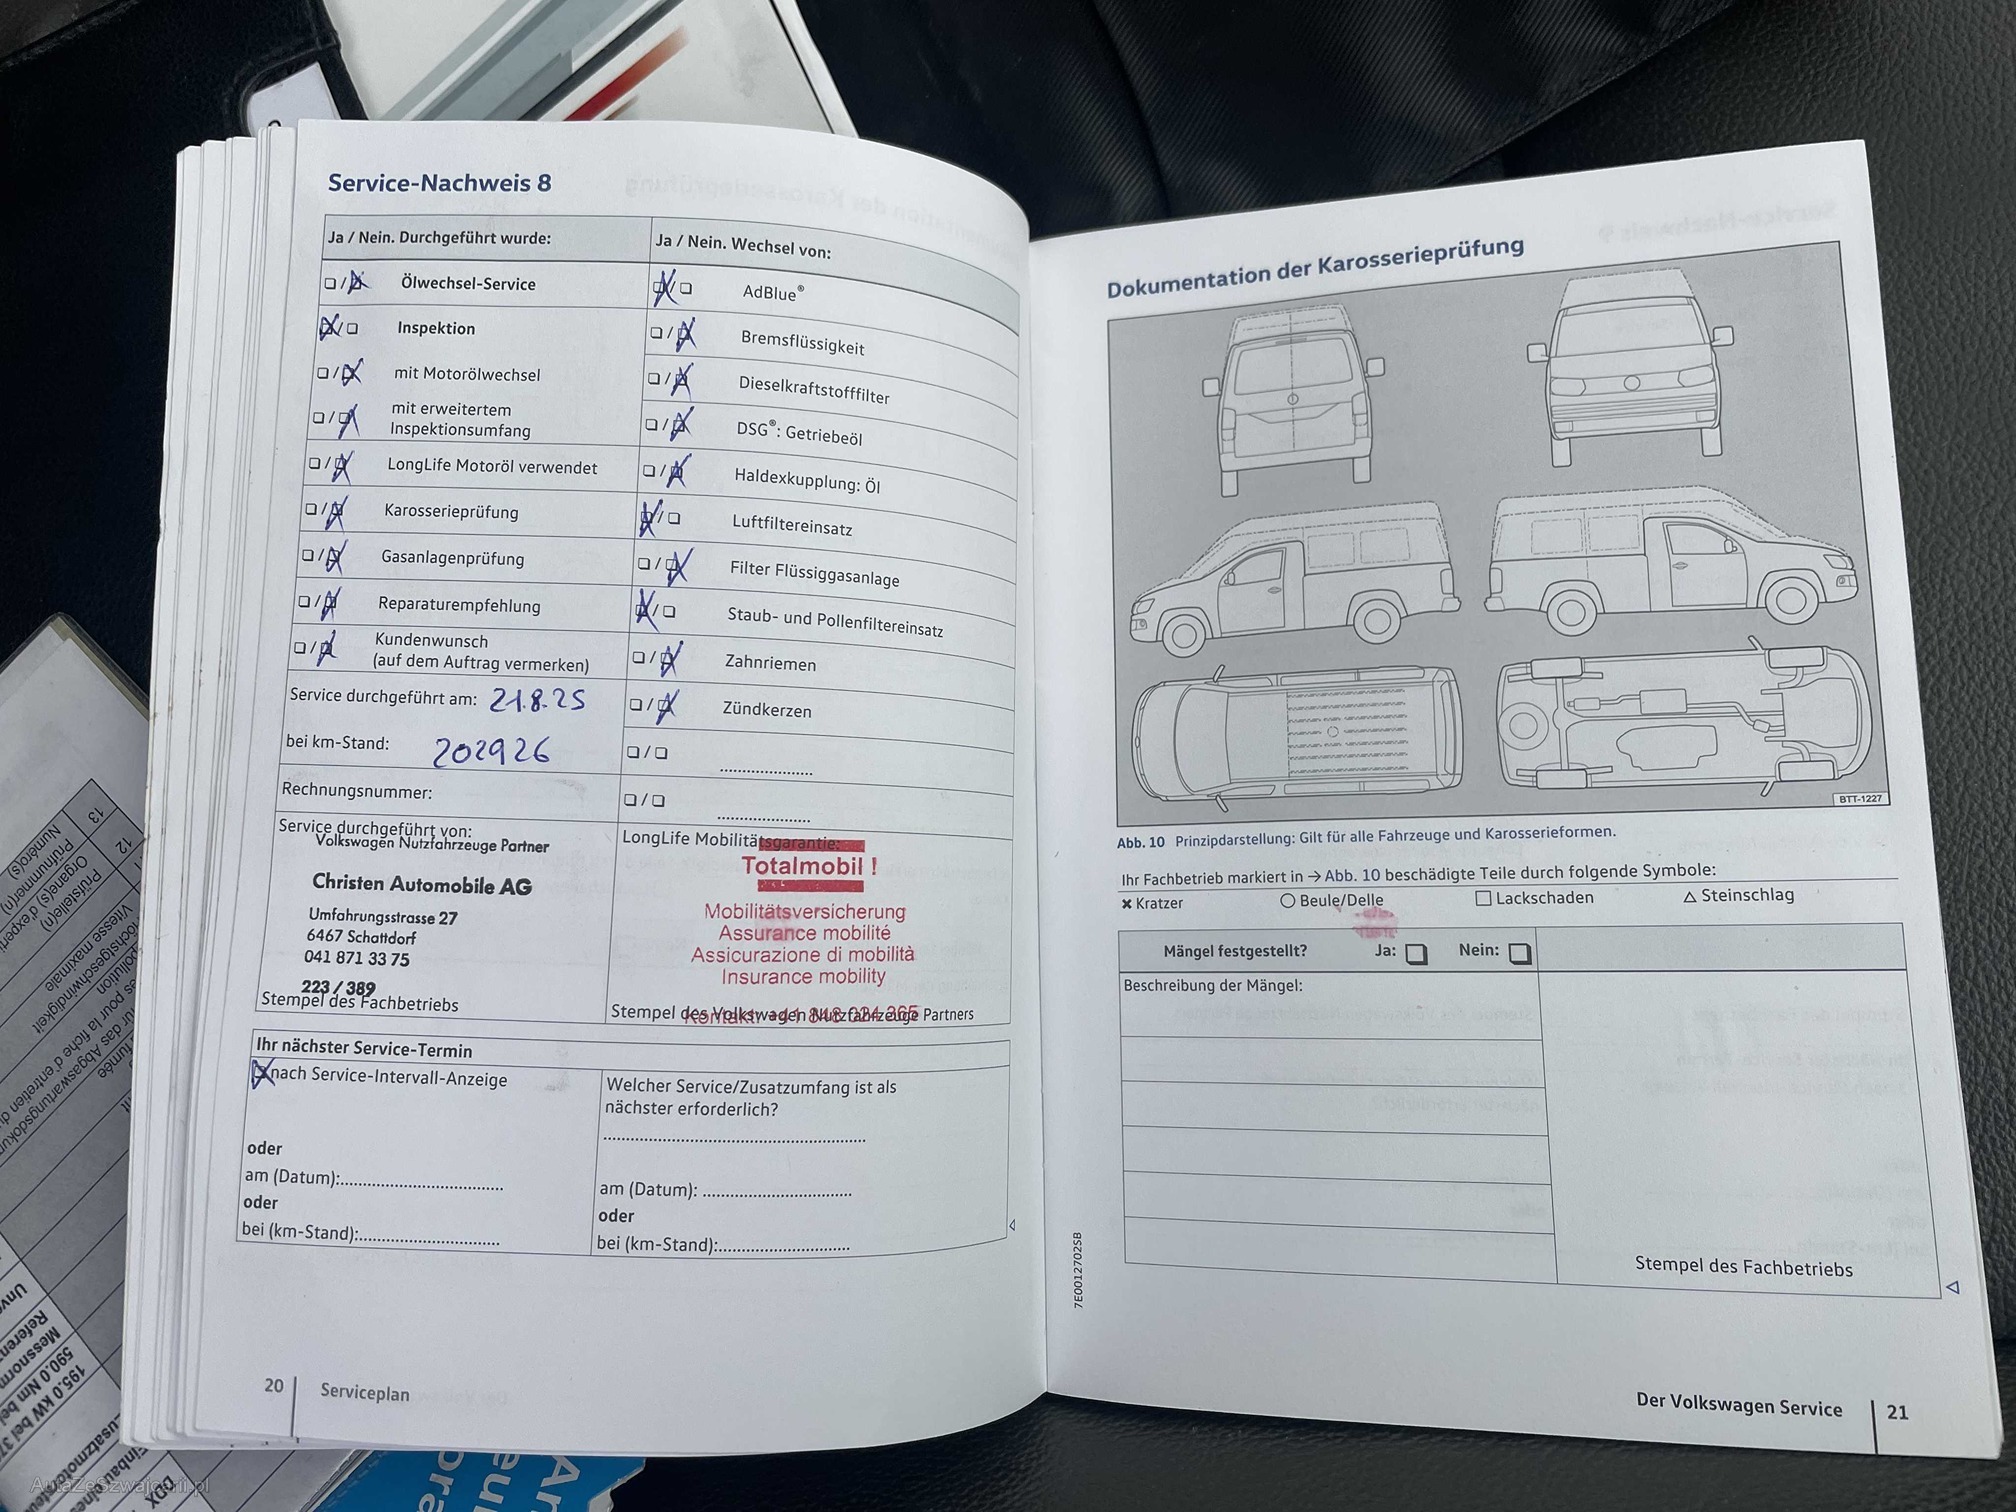 Service-Nachweis 8
Ja / Nein. Durchgeführt wurde:
Ölwechsel-Service
Inspektion
mit Motorölwechsel
mit erweitertem
Inspektionsumfang
LongLife Motoröl verwendet
Karosserieprüfung
Gasanlagenprüfung
Reparaturempfehlung
Kundenwunsch
(auf dem Auftrag vermerken)
Service durchgeführt am: 21.8.25
bei km-Stand: 202926
Rechnungsnummer:
Service durchgeführt von:
Volkswagen Nutzfahrzeuge Partner
Christen Automobile AG
Umfahrungsstrasse 27
6467 Schattdorf
041 871 33 75
223 / 389
Stempel des Fachbetriebs
Ja / Nein. Wechsel von:
AdBlue®
Bremsflüssigkeit
Dieselkraftstofffilter
DSG®: Getriebeöl
Haldexkupplung: Öl
Luftfiltereinsatz
Filter Flüssiggasanlage
Staub- und Pollenfiltereinsatz
Zahnriemen
Zündkerzen
LongLife Mobilitätsgarantie:
Totalmobil !
Mobilitätsversicherung
Assurance mobilité
Assicurazione di mobilità
Insurance mobility
Kontakt: +41 848 024 365
Stempel des Volkswagen Nutzfahrzeuge Partners
Ihr nächster Service-Termin
nach Service-Intervall-Anzeige
oder
am (Datum):
oder
bei (km-Stand):
Welcher Service/Zusatzumfang ist als
nächster erforderlich?
am (Datum):
oder
bei (km-Stand):
20 Serviceplan
Dokumentation der Karosserieprüfung
BTT-1227
Abb. 10 Prinzipdarstellung: Gilt für alle Fahrzeuge und Karosserieformen.
Ihr Fachbetrieb markiert in → Abb. 10 beschädigte Teile durch folgende Symbole:
× Kratzer ○ Beule/Delle □ Lackschaden △ Steinschlag
Mängel festgestellt? Ja: Nein:
Beschreibung der Mängel:
Stempel des Fachbetriebs
7E0012702SB
Der Volkswagen Service 21
13
12
Numéro(s)
Prüfnummer(n)
Organe(s) d'experti
Prüfstelle(n)
Vitesse maximale
195.0 kW bei
590.0 Nm bei
AutaZeSzwajcarii.pl